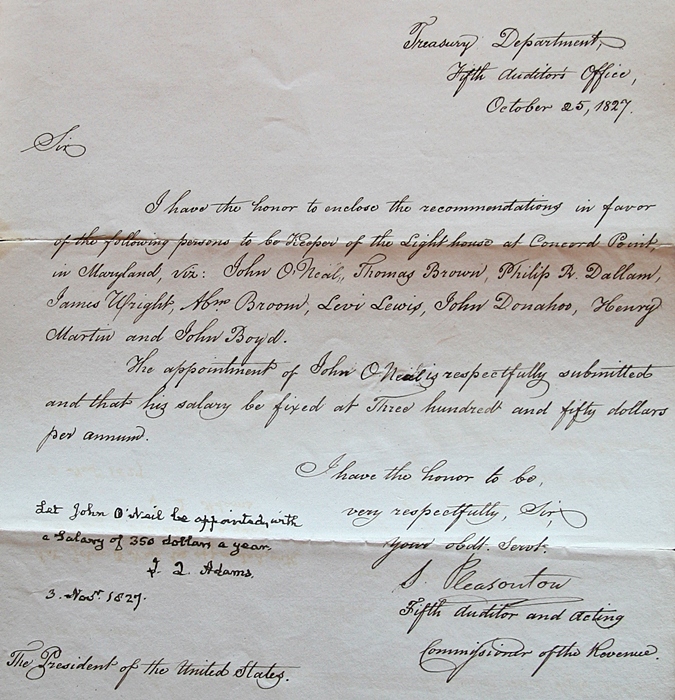 Treasury Department,
Fifth Auditor's Office,
October 25, 1827.
Sir
I have the honor to enclose the recommendations in favor
of the following persons to be Keeper of the Light house at Concord Point,
in Maryland, viz: John O'Neal, Thomas Brown, Philip R. Dallam,
James Wright, Abm Broom, Levi Lewis, John Donahoo, Henry
Martin and John Boyd.
The appointment of John O'Neal is respectfully submitted
and that his salary be fixed at Three hundred and fifty dollars
per annum.
I have the honor to be,
very respectfully, Sir,
your obdt. Servt.
S. Pleasonton
Fifth Auditor and Acting
Commissioner of the Revenue.
Let John O'Neil be appointed, with
a Salary of 350 dollars a year.
J. Q. Adams.
3. Novr. 1827.
The President of the United States.